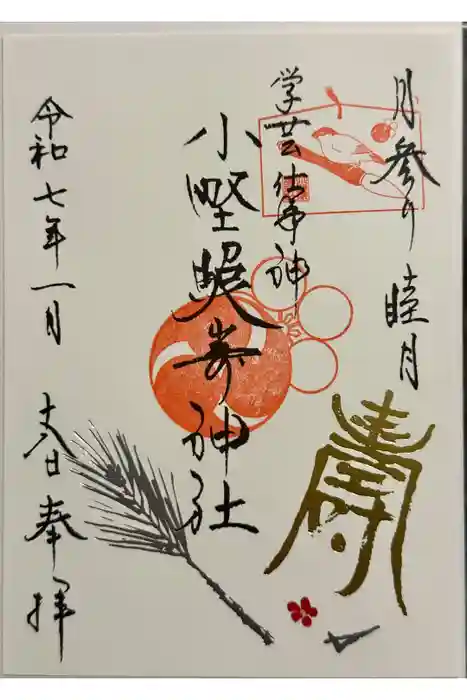 月参り 睦月
学芸仕事神
小野照嵜神社
令和七年一月 吉日奉拝
壽